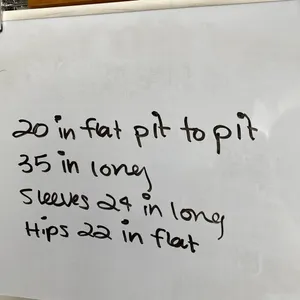 20 in flat pit to pit
35 in long
Sleeves 24 in long
Hips 22 in flat